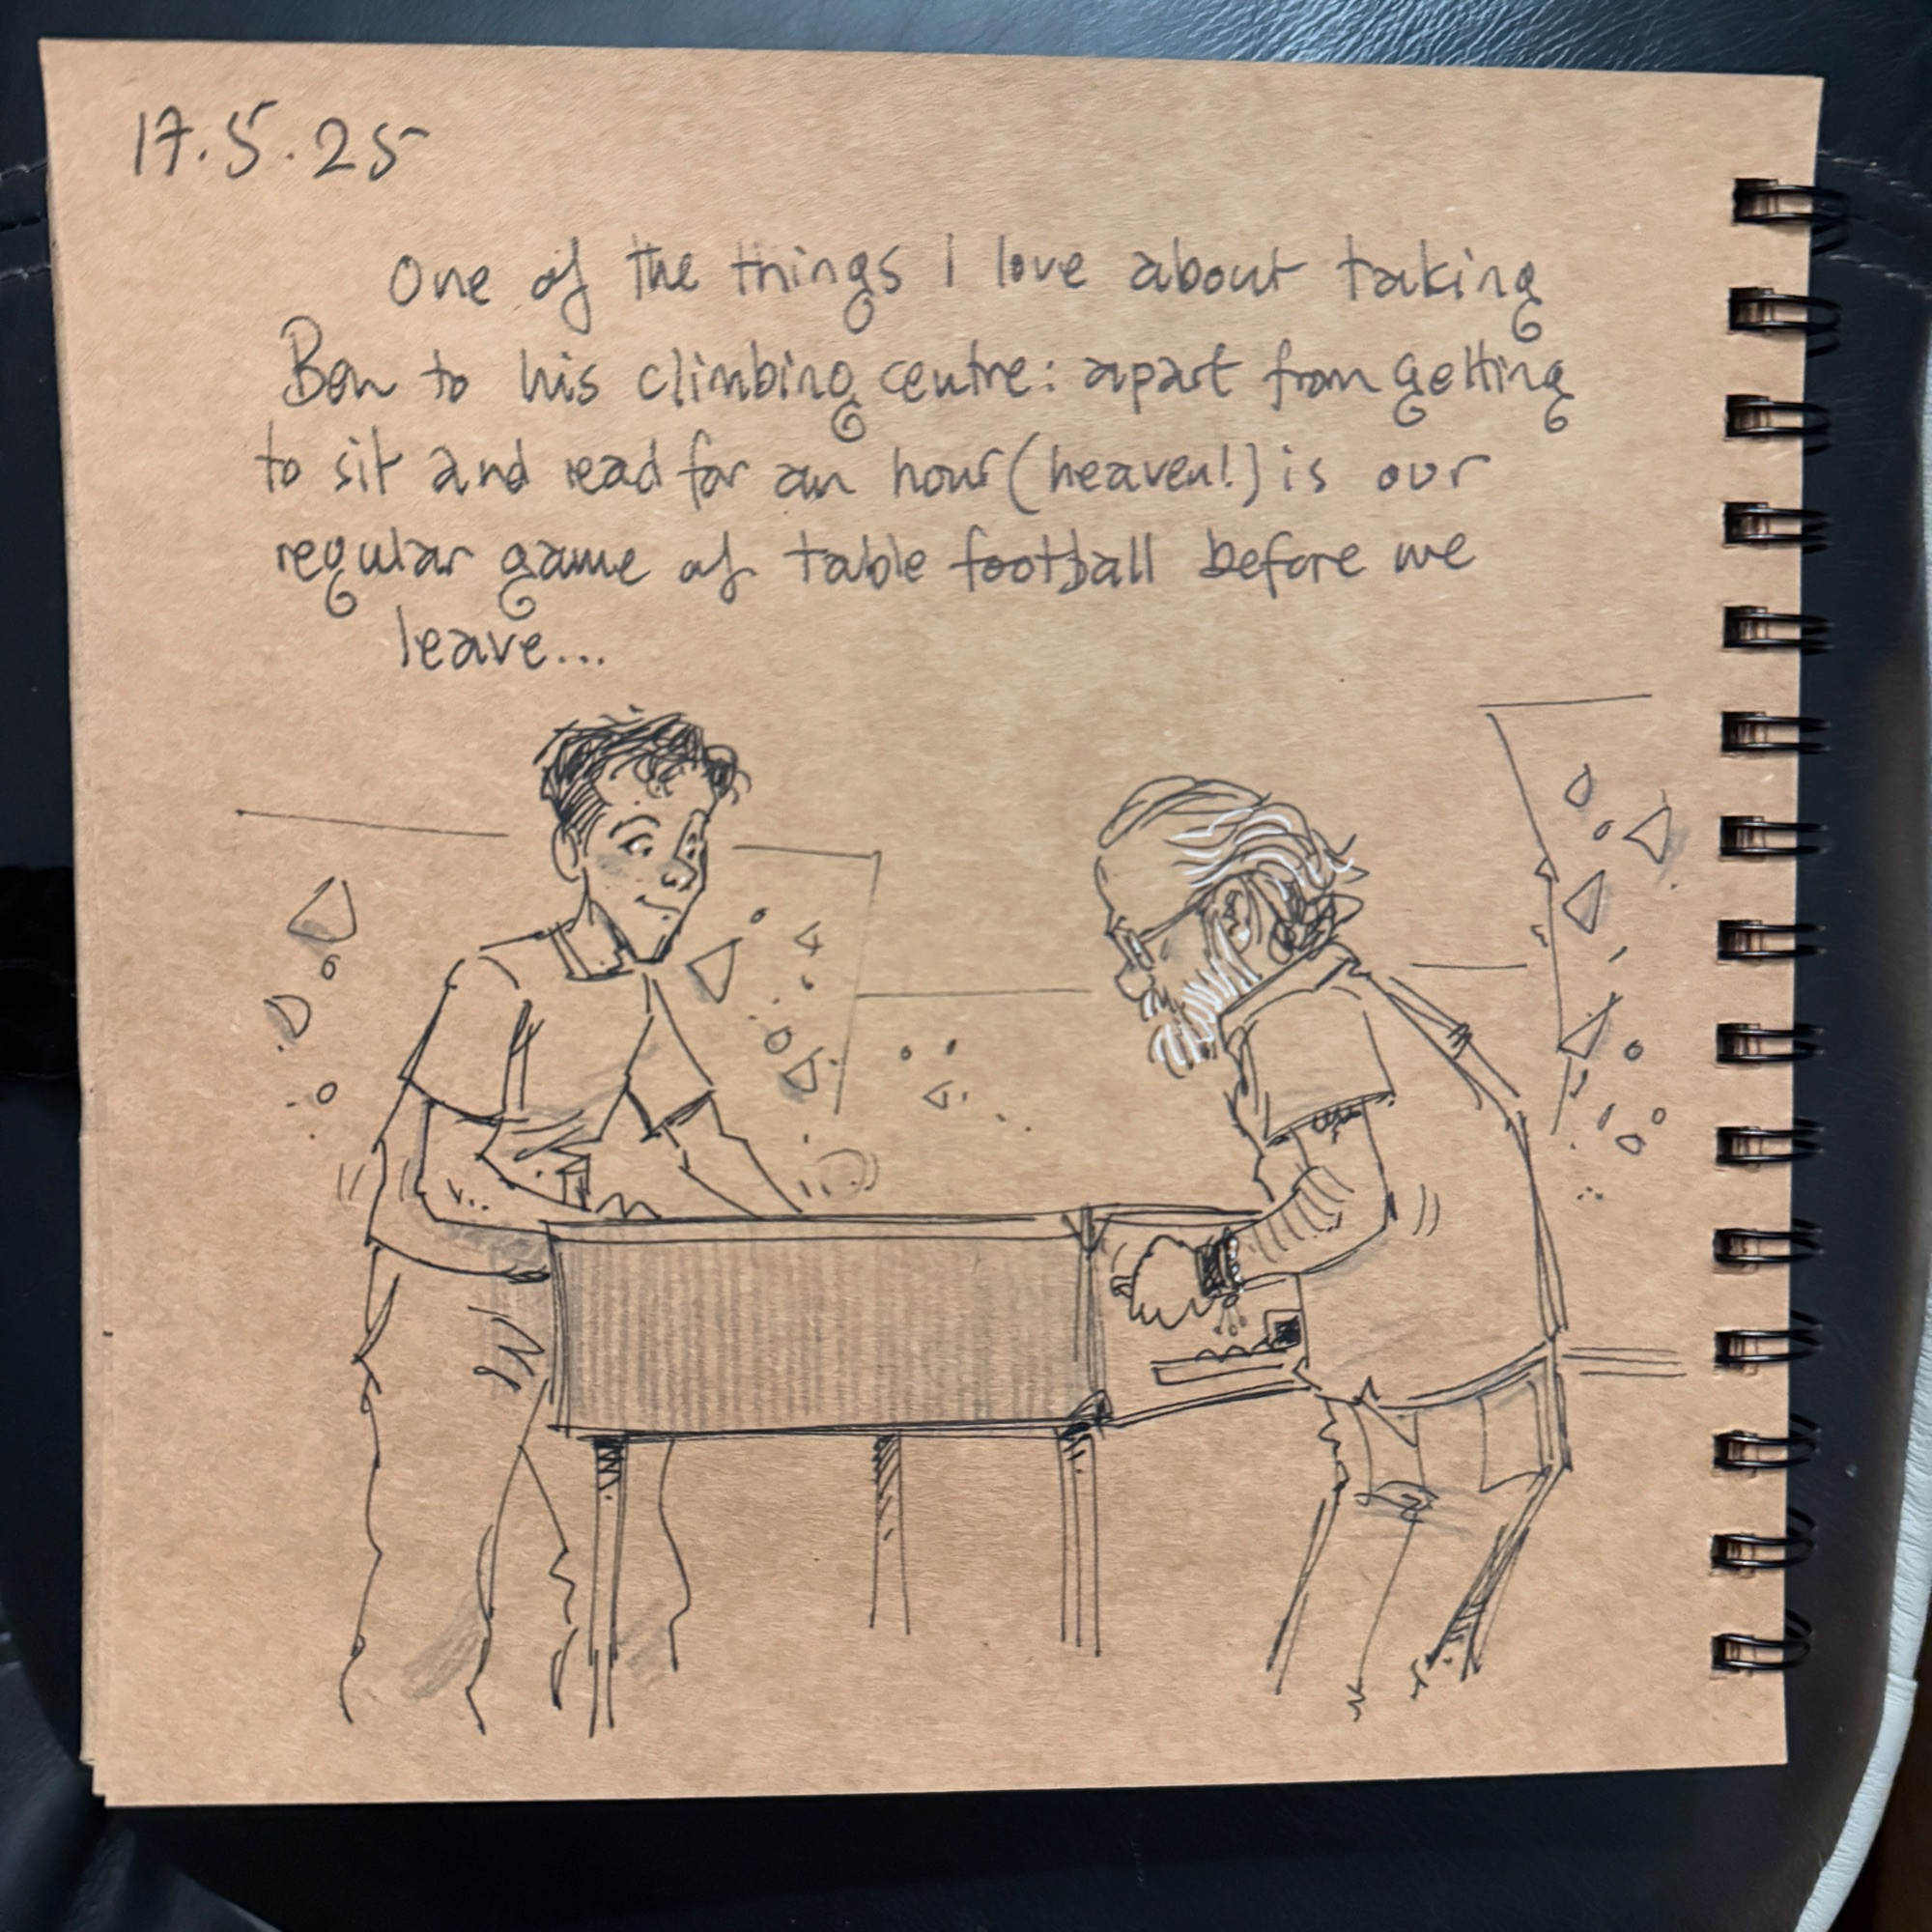 17.5.25
One of the things I love about taking
Ben to his climbing centre: apart from getting
to sit and read for an hour (heaven!) is our
regular game of table football before we
leave...